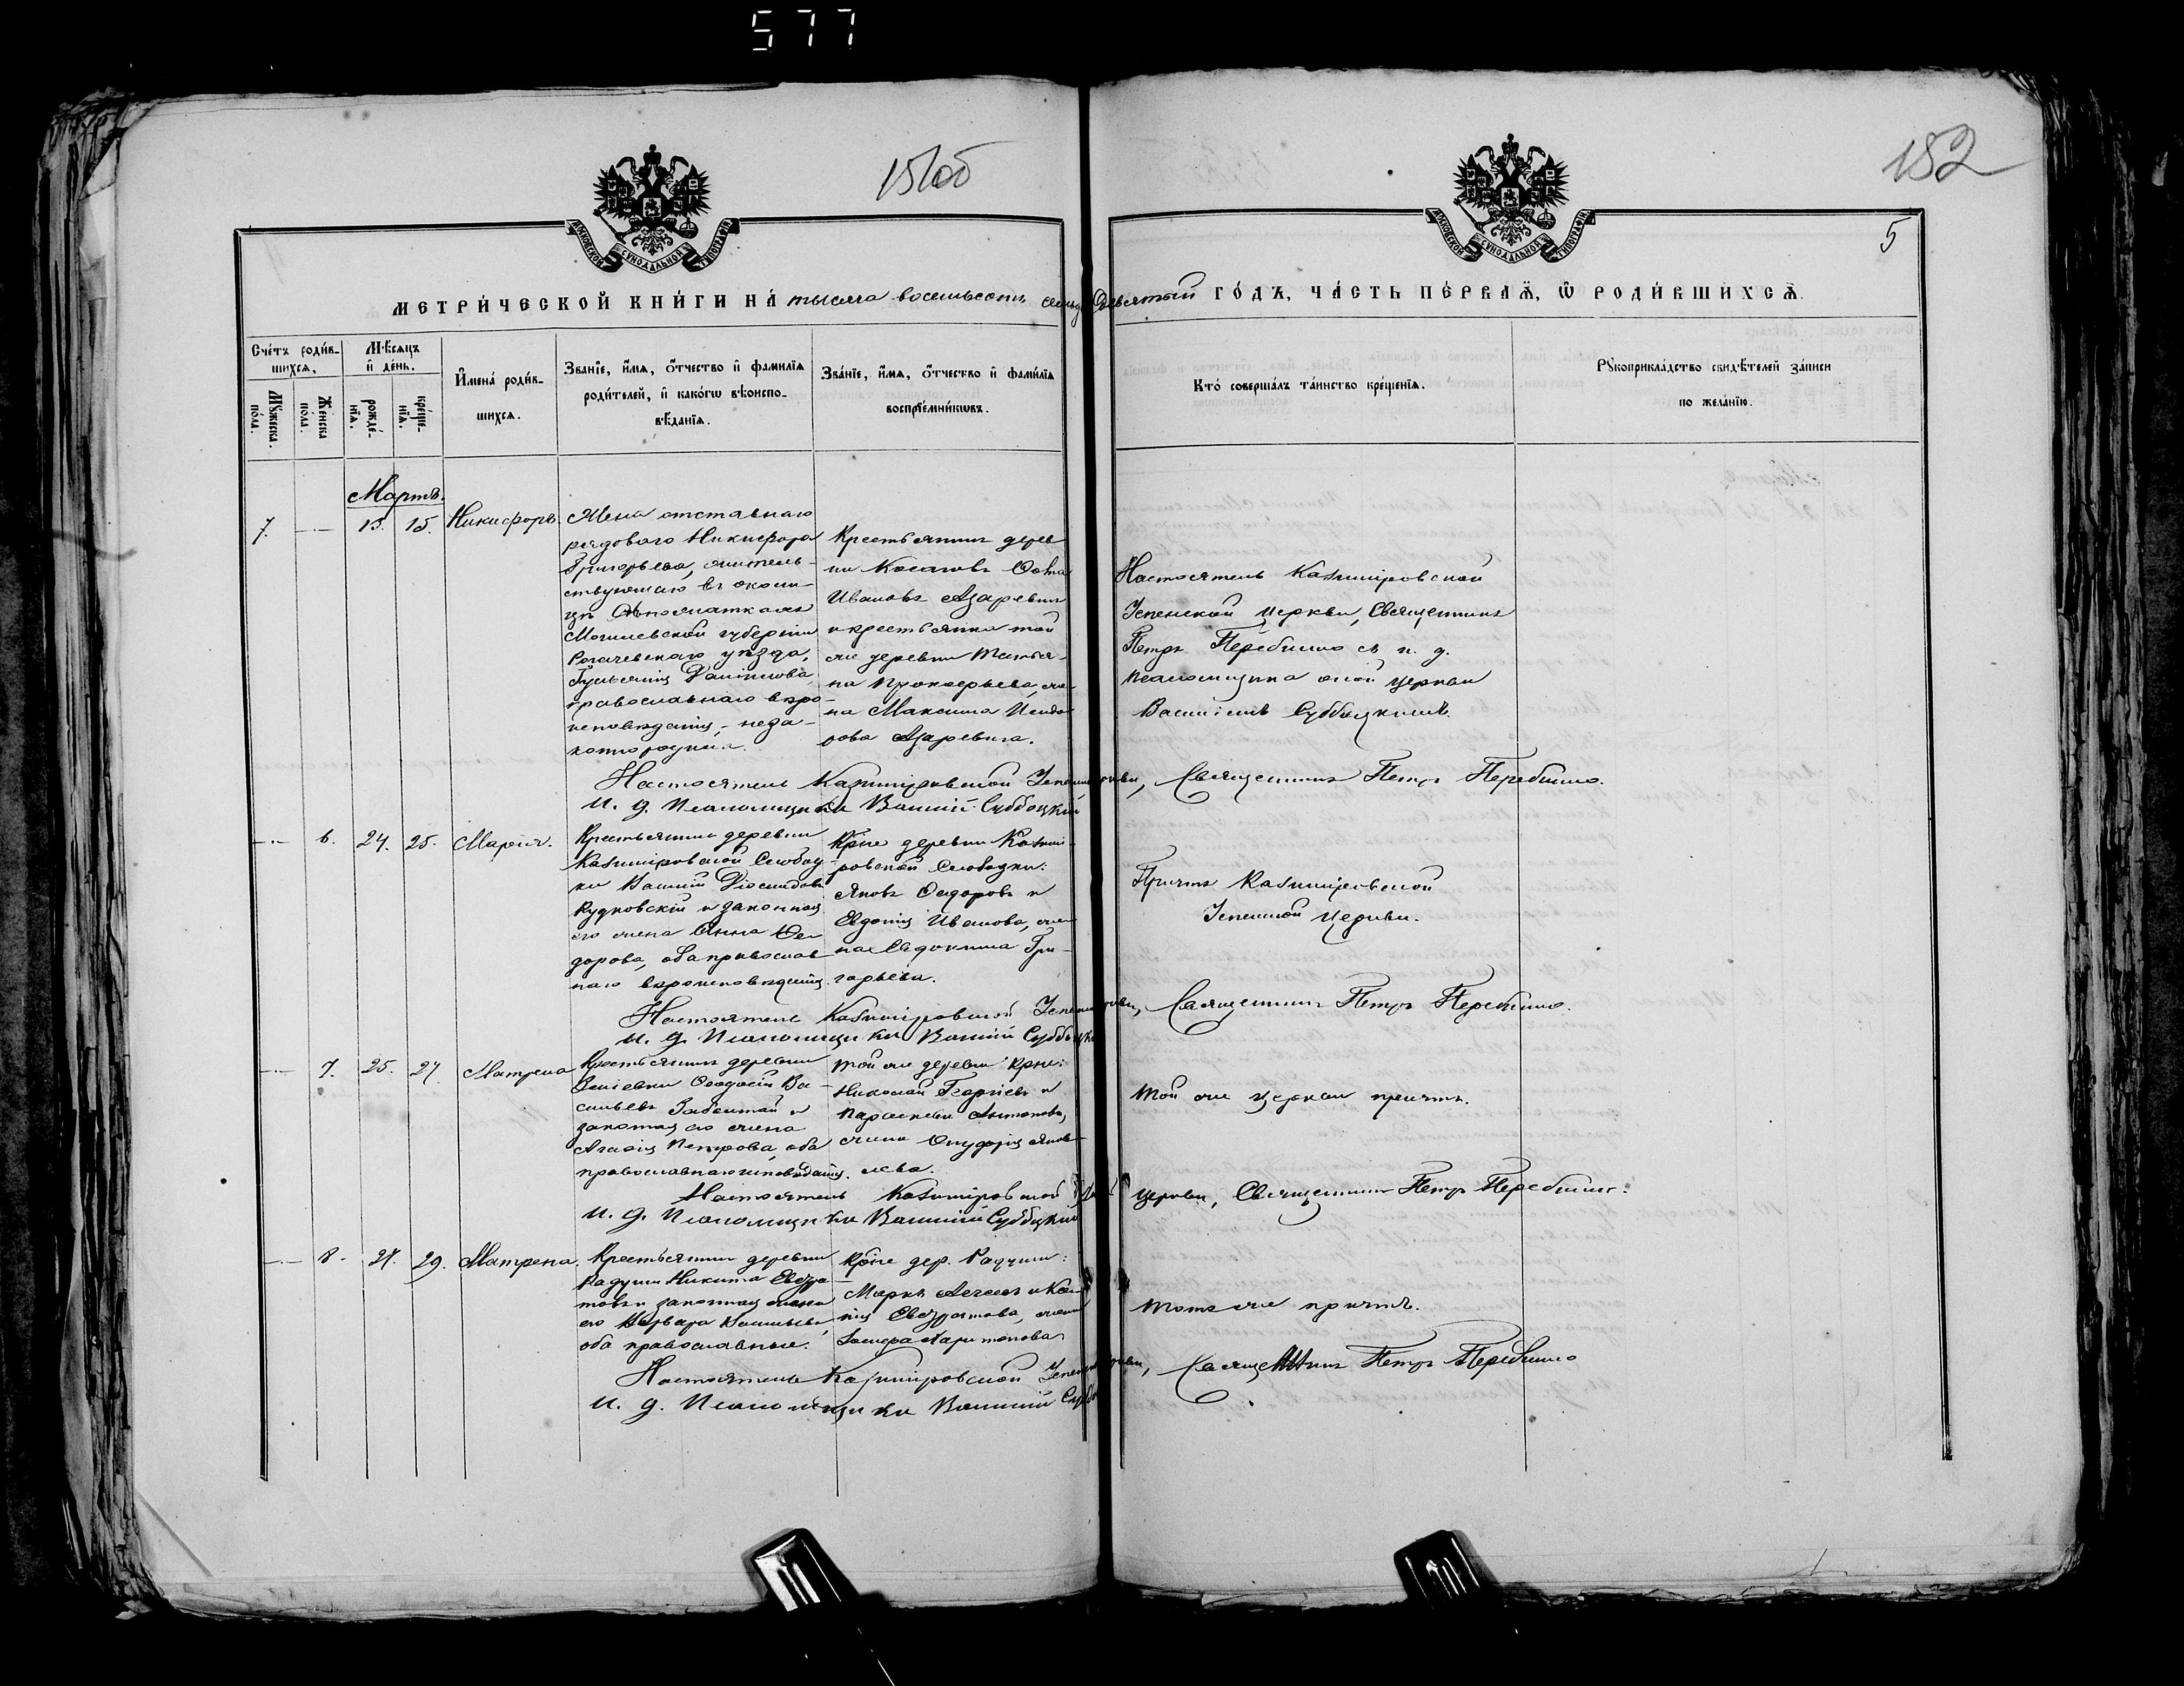 577
152
5
МОСКОВСКОЙ СѴНОДАЛЬНОЙ ТИПОГРАФІИ
МОСКОВСКОЙ СѴНОДАЛЬНОЙ ТИПОГРАФІИ
МЕТРИ́ЧЕСКОЙ КНИ́ГИ НА́ тысяча восемьсотъ девятый ГО́ДЪ, ЧА́СТЬ ПЕ́РВАѦ, Ѡ҆ РОДИ́ВШИХСѦ.
Сче́тъ роди́в-
шихсѧ,
Мѣ́сѧцъ
и҆ де́нь.
Мꙋ́жеска по́ла.
Же́нска по́ла.
рожде́-нїѧ.
креще́-нїѧ.
И҆мена̀ роди́в-
шихсѧ.
Зва́нїе, и҆́мѧ, ѻ҆́тчество и҆ фами́лїѧ
роди́телей, и҆ како́гѡ вѣроиспо-
вѣ́данїѧ.
Зва́нїе, и҆́мѧ, ѻ҆́тчество и҆ фами́лїѧ
воспрїе́мникѡвъ.
Кто̀ соверша́лъ та́инство креще́нїѧ.
Рꙋкоприкла́дство свидѣ́телей за́писи
по жела́нїю.
Мартъ.
7. 13. 15. Никифоръ.
Жена отставнаго
рядового Никифора
Григорьева, жительствующаго въ
Могилевской губерніи
Рогачевскаго уѣзда,
Даниилова,
православнаго вѣро-
исповѣданія, неза-
конорожден.
Крестьянинъ дерев-
ни Косаковъ
Ивановъ Азаревичъ
и крестьянка той
же деревни Татья-
на Прокофьева, же-
на Максима Исидо-
рова Азаревича.
Настоятель Казимировской
Успенской церкви, Священникъ
Петръ Перебилло съ и. д.
псаломщика оной церкви
Василіемъ Суббоцкимъ.
Настоятель Казимировской Успенской церкви, Священникъ Петръ Перебилло.
И. д. Псаломщика Василій Суббоцкій
6. 24. 25. Марія.
Крестьянинъ деревни
Казимировской Слобод-
ки Василій Діомидовъ
Рудковскій и законная
его жена Анна
дорова, оба православ-
наго вѣроисповѣданія.
Крне деревни Казими-
ровской Слободки:
Яковъ Сидоровъ и
Евдокія Иванова, же-
на Евдокима Гри-
горьева.
Причтъ Казимировской
Успенской церкви.
Настоятель Казимировской Успенской церкви, Священникъ Петръ Перебилло.
И. д. Псаломщика Василій Суббоцкій
7. 25. 27. Матрена
Крестьянинъ деревни
Ѳеодосій Ва-
сильевъ и
законная его жена
Агафія Петрова, оба
православнаго исповѣданія.
Той же деревни Крне:
Николай Георгіевъ и
Параскева Антонова,
жена Яков-
лева.
Той же церкви причтъ.
Настоятель Казимировской Успен. церкви, Священникъ Петръ Перебилло.
И. д. Псаломщика Василій Суббоцкій
8. 29. Матрена.
Крестьянинъ деревни
Радуши Никита Евстра-
товъ и законная жена
его Варвара Васильева,
оба православные.
Крне дер. Радуши:
Маркъ и
Евстратова, жена
Харитонова
Тотъ же причтъ.
Настоятель Казимировской Успенской церкви, Священникъ Петръ Перебилло
И. д. Псаломщика Василій Суббо